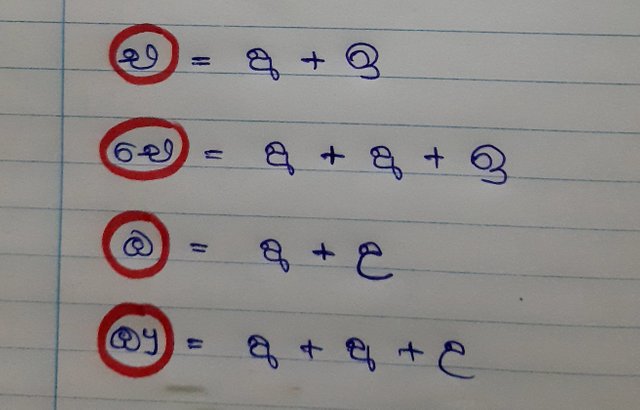 එ = අ + ඉ
ඓ = අ + අ + ඉ
ඔ = අ + උ
ඖ = අ + අ + උ